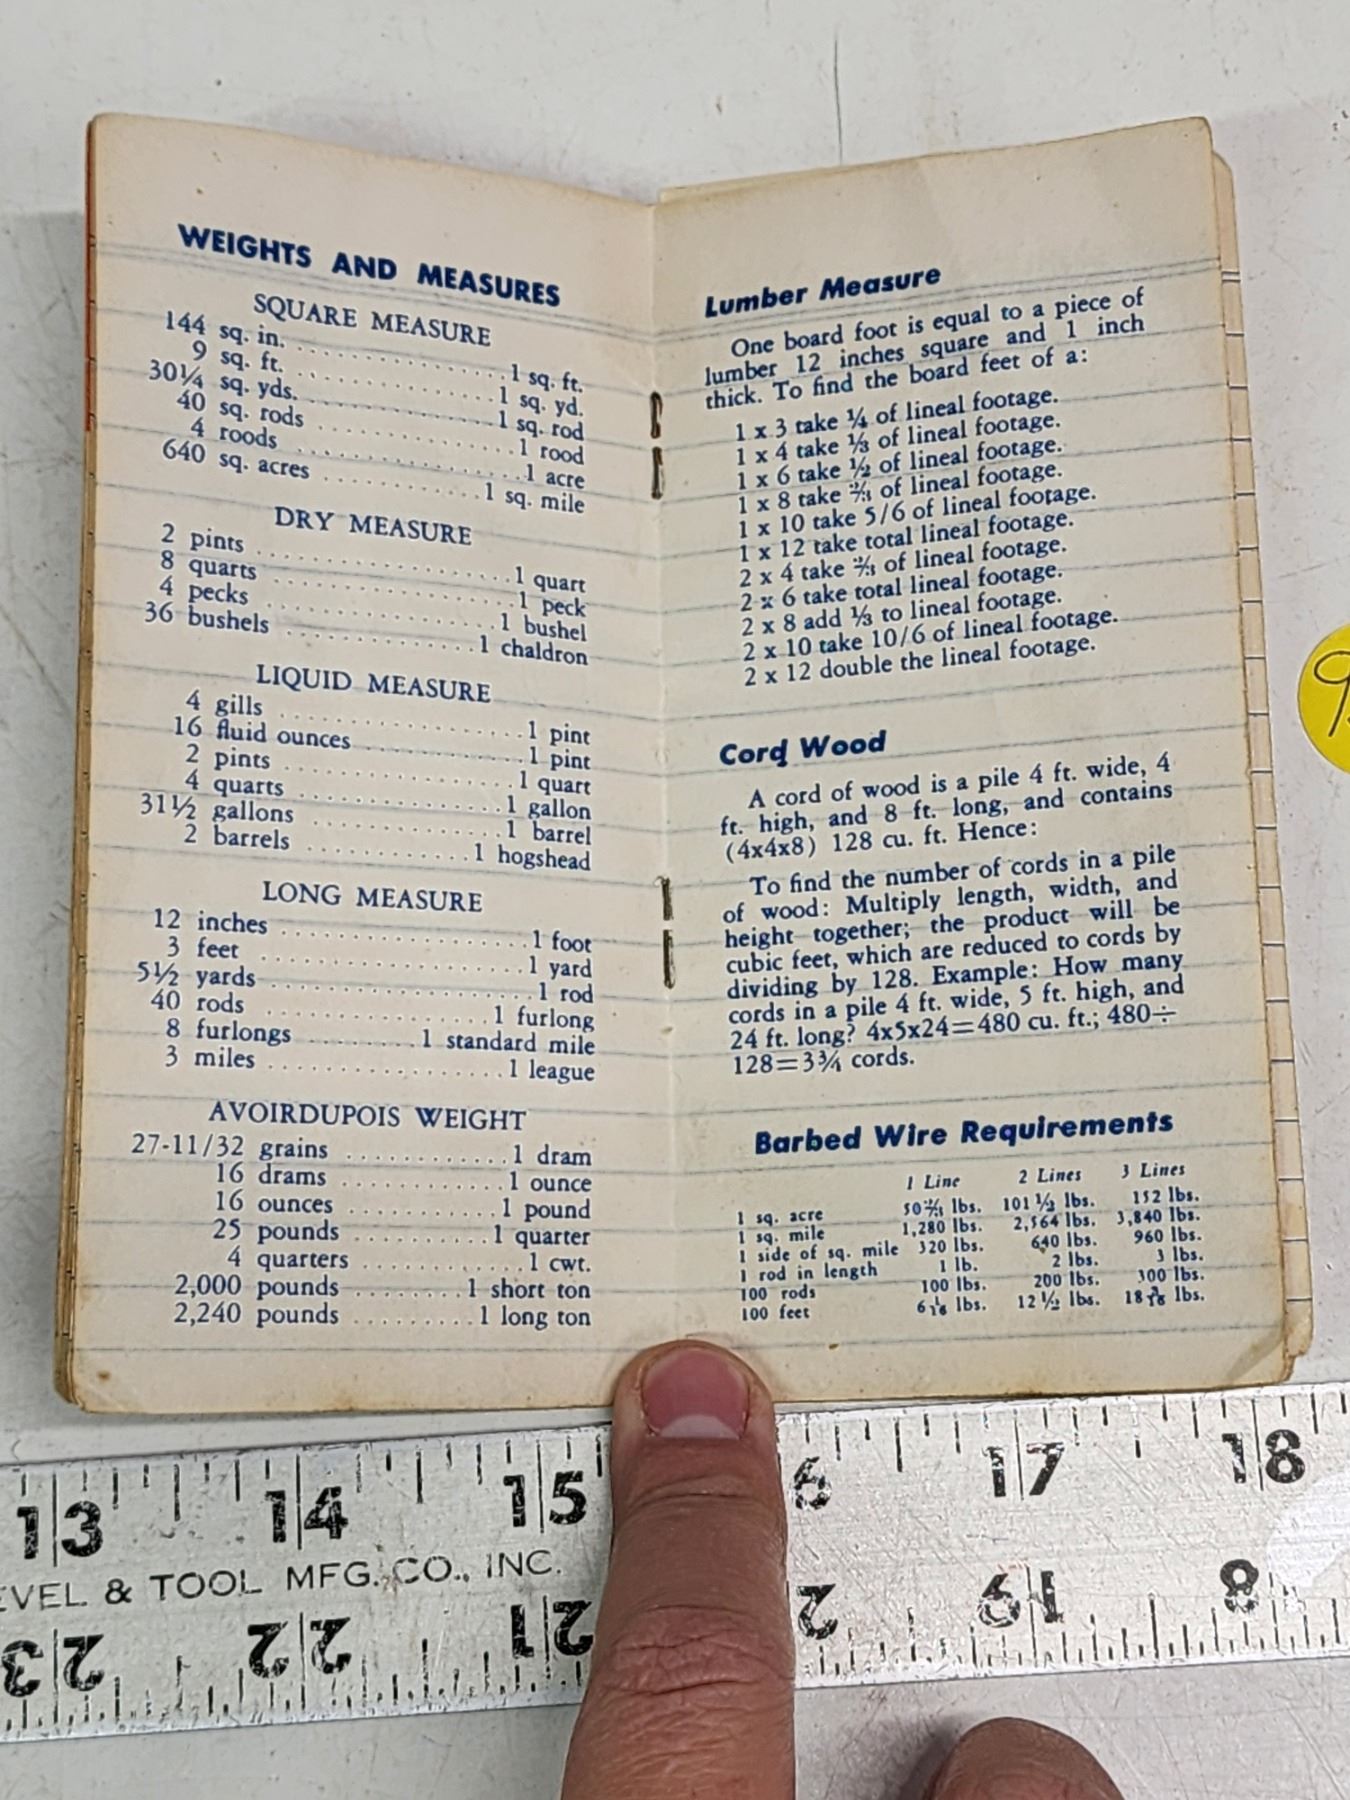 WEIGHTS AND MEASURES
SQUARE MEASURE
144 sq. in. .................... 1 sq. ft.
9 sq. ft. .................... 1 sq. yd.
30¼ sq. yds. .................... 1 sq. rod
40 sq. rods .................... 1 rood
4 roods .................... 1 acre
640 sq. acres .............. 1 sq. mile
DRY MEASURE
2 pints .................... 1 quart
8 quarts .................... 1 peck
4 pecks .................... 1 bushel
36 bushels .............. 1 chaldron
LIQUID MEASURE
4 gills .................... 1 pint
16 fluid ounces .............. 1 pint
2 pints .................... 1 quart
4 quarts .................... 1 gallon
31½ gallons .............. 1 barrel
2 barrels .............. 1 hogshead
LONG MEASURE
12 inches .................... 1 foot
3 feet .................... 1 yard
5½ yards .................... 1 rod
40 rods .................... 1 furlong
8 furlongs ......... 1 standard mile
3 miles .................... 1 league
AVOIRDUPOIS WEIGHT
27-11/32 grains ............ 1 dram
16 drams ............ 1 ounce
16 ounces ............ 1 pound
25 pounds .......... 1 quarter
4 quarters ............ 1 cwt.
2,000 pounds ........ 1 short ton
2,240 pounds ......... 1 long ton
Lumber Measure
One board foot is equal to a piece of
lumber 12 inches square and 1 inch
thick. To find the board feet of a:
1 x 3 take ¼ of lineal footage.
1 x 4 take ⅓ of lineal footage.
1 x 6 take ½ of lineal footage.
1 x 8 take ⅔ of lineal footage.
1 x 10 take 5/6 of lineal footage.
1 x 12 take total lineal footage.
2 x 4 take ⅔ of lineal footage.
2 x 6 take total lineal footage.
2 x 8 add ⅓ to lineal footage.
2 x 10 take 10/6 of lineal footage.
2 x 12 double the lineal footage.
Cord Wood
A cord of wood is a pile 4 ft. wide, 4
ft. high, and 8 ft. long, and contains
(4x4x8) 128 cu. ft. Hence:
To find the number of cords in a pile
of wood: Multiply length, width, and
height together; the product will be
cubic feet, which are reduced to cords by
dividing by 128. Example: How many
cords in a pile 4 ft. wide, 5 ft. high, and
24 ft. long? 4x5x24=480 cu. ft.; 480÷
128=3¾ cords.
Barbed Wire Requirements
1 Line 2 Lines 3 Lines
1 sq. acre 50⅔ lbs. 101½ lbs. 152 lbs.
1 sq. mile 1,280 lbs. 2,564 lbs. 3,840 lbs.
1 side of sq. mile 320 lbs. 640 lbs. 960 lbs.
1 rod in length 1 lb. 2 lbs. 3 lbs.
100 rods 100 lbs. 200 lbs. 300 lbs.
100 feet 6 1/16 lbs. 12½ lbs. lbs.
13 14 15 6 17 18
EVEL & TOOL MFG. CO., INC.
23 22 21 2 19 8
9